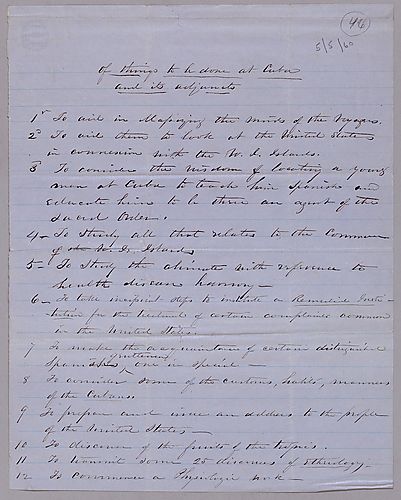 46
5/5/60
Of things to be done at Cuba
and its adjuncts
1st To aid in Magnetizing the minds of the Voyagers.
2nd To aid them to look at the United States
in connexion with the W. I. Islands.
3 To consider the wisdom of locating a young
man at Cuba to teach him Spanish and
educate him to be there an agent of the
Sacred Order.
4 To study all that relates to the Commerce
of the W. I. Islands
5 To Study the climate with reference to
health disease harmony
6 To take incipient steps to institute a Remedial Insti-
tution for the treatment of certain complaints common
in the United States.
7 To make the acquaintance of certain distinguished
Spanish gentlemen, one in special
8 To consider some of the customs, habits, manners
of the Cubans.
9 To prepare and issue an address to the people
of the United States
10 To discourse of the fruits of the tropics.
11 To transmit some 20 discourses of ethnology
12 To commence a work